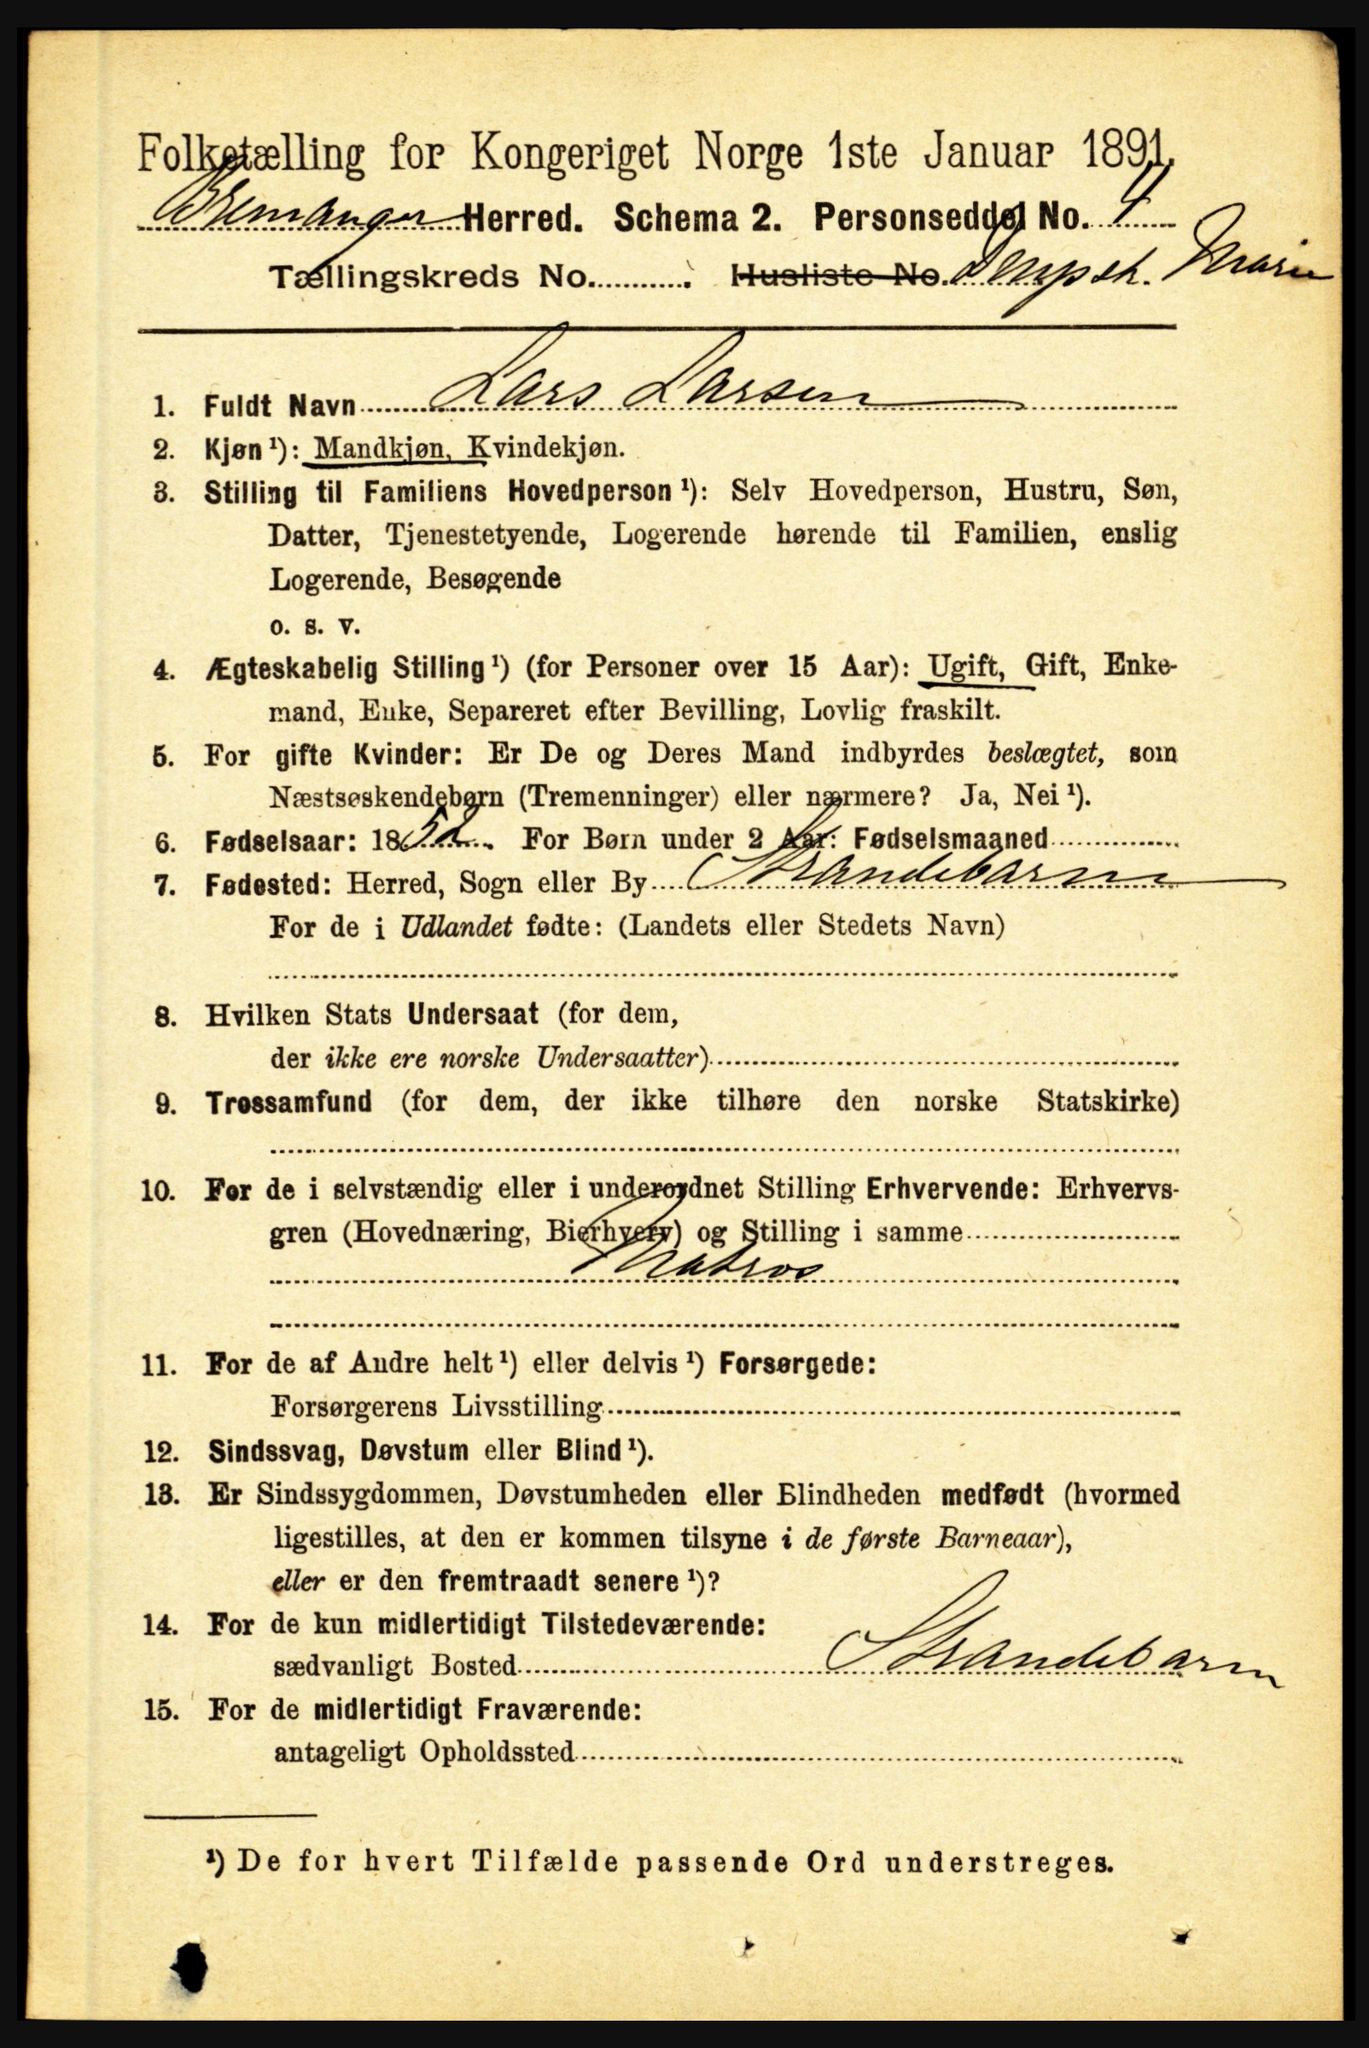 Folketælling for Kongeriget Norge 1ste Januar 1891.
Bremanger Herred. Schema 2. Personseddel No. 4
Tællingskreds No. . Husliste No. Dmpsk. Marie
1. Fuldt Navn Lars Larsen
2. Kjøn¹): Mandkjøn, Kvindekjøn.
3. Stilling til Familiens Hovedperson¹): Selv Hovedperson, Hustru, Søn,
Datter, Tjenestetyende, Logerende hørende til Familien, enslig
Logerende, Besøgende
o. s. v.
4. Ægteskabelig Stilling¹) (for Personer over 15 Aar): Ugift, Gift, Enke-
mand, Enke, Separeret efter Bevilling, Lovlig fraskilt.
5. For gifte Kvinder: Er De og Deres Mand indbyrdes beslægtet, som
Næstsøskendebørn (Tremenninger) eller nærmere? Ja, Nei¹).
6. Fødselsaar: 1852. For Børn under 2 Aar: Fødselsmaaned
7. Fødested: Herred, Sogn eller By Strandebarm
For de i Udlandet fødte: (Landets eller Stedets Navn)
8. Hvilken Stats Undersaat (for dem,
der ikke ere norske Undersaatter)
9. Trossamfund (for dem, der ikke tilhøre den norske Statskirke)
10. For de i selvstændig eller i underordnet Stilling Erhvervende: Erhvervs-
gren (Hovednæring, Bierhverv) og Stilling i samme
Matros
11. For de af Andre helt¹) eller delvis¹) Forsørgede:
Forsørgerens Livsstilling
12. Sindssvag, Døvstum eller Blind¹).
13. Er Sindssygdommen, Døvstumheden eller Blindheden medfødt (hvormed
ligestilles, at den er kommen tilsyne i de første Barneaar),
eller er den fremtraadt senere¹)?
14. For de kun midlertidigt Tilstedeværende:
sædvanligt Bosted Strandebarm
15. For de midlertidigt Fraværende:
antageligt Opholdssted
¹) De for hvert Tilfælde passende Ord understreges.